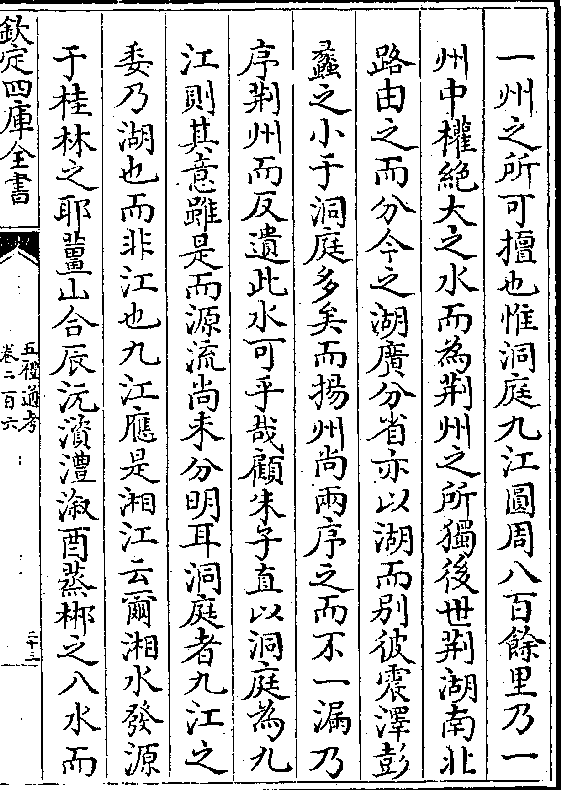 一州之所可擅也惟洞庭九江圓周八百餘里乃一
州中權絶大之水而為荆州之所獨後世荆湖南北
路由之而分今之湖廣分省亦以湖而别彼震澤彭
蠡之小于洞庭多矣而揚州尚兩序之而不一漏乃
序荆州而反遺此水可乎哉顧朱子直以洞庭為九
江則其意雖是而源流尚未分明耳洞庭者九江之
委乃湖也而非江也九江應是湘江云爾湘水發源
于桂林之耶薑山合辰沅濱澧溆酉蒸郴之八水而
欽定四庫全書
五禮通考
卷二百六
二十三